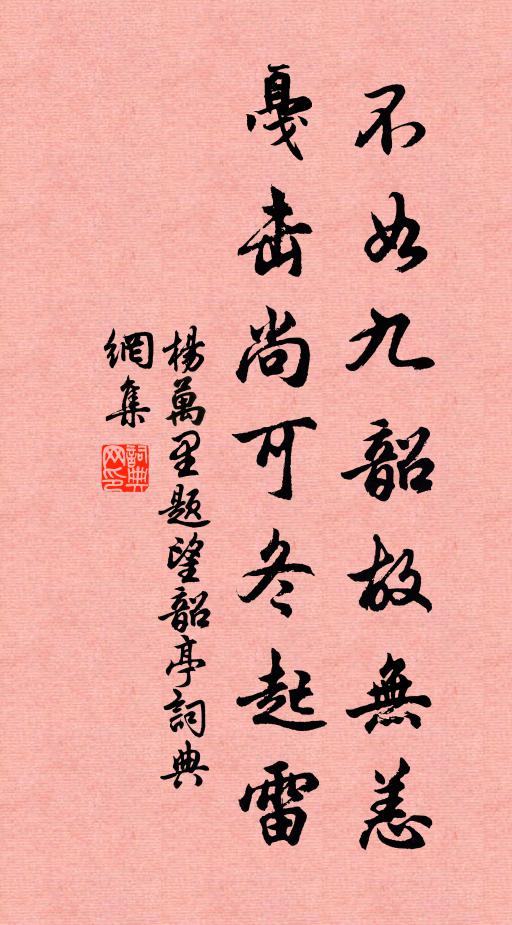 不如九韶故無恙
戞击尚可冬起雷
楊萬里题望韶亭詞典
網集
詞典
网印